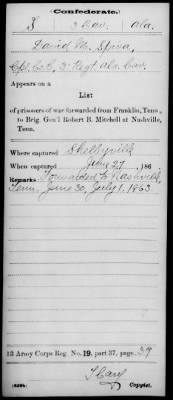 Confederate.
S 3 Cav. Ala.
David M.
3 Regt. Ala. Cav.
Appears on a
List
of prisoners of war forwarded from Franklin, Tenn.,
to Brig. Gen'l Robert B. Mitchell at Nashville,
Tenn.
Where captured Shelbyville
When captured June 27, 186
Remarks: Forwarded to Nashville,
Tenn. June 30, July 1, 1863.
13 Army Corps Reg. No. 19, part 37, page 29
Copyist.